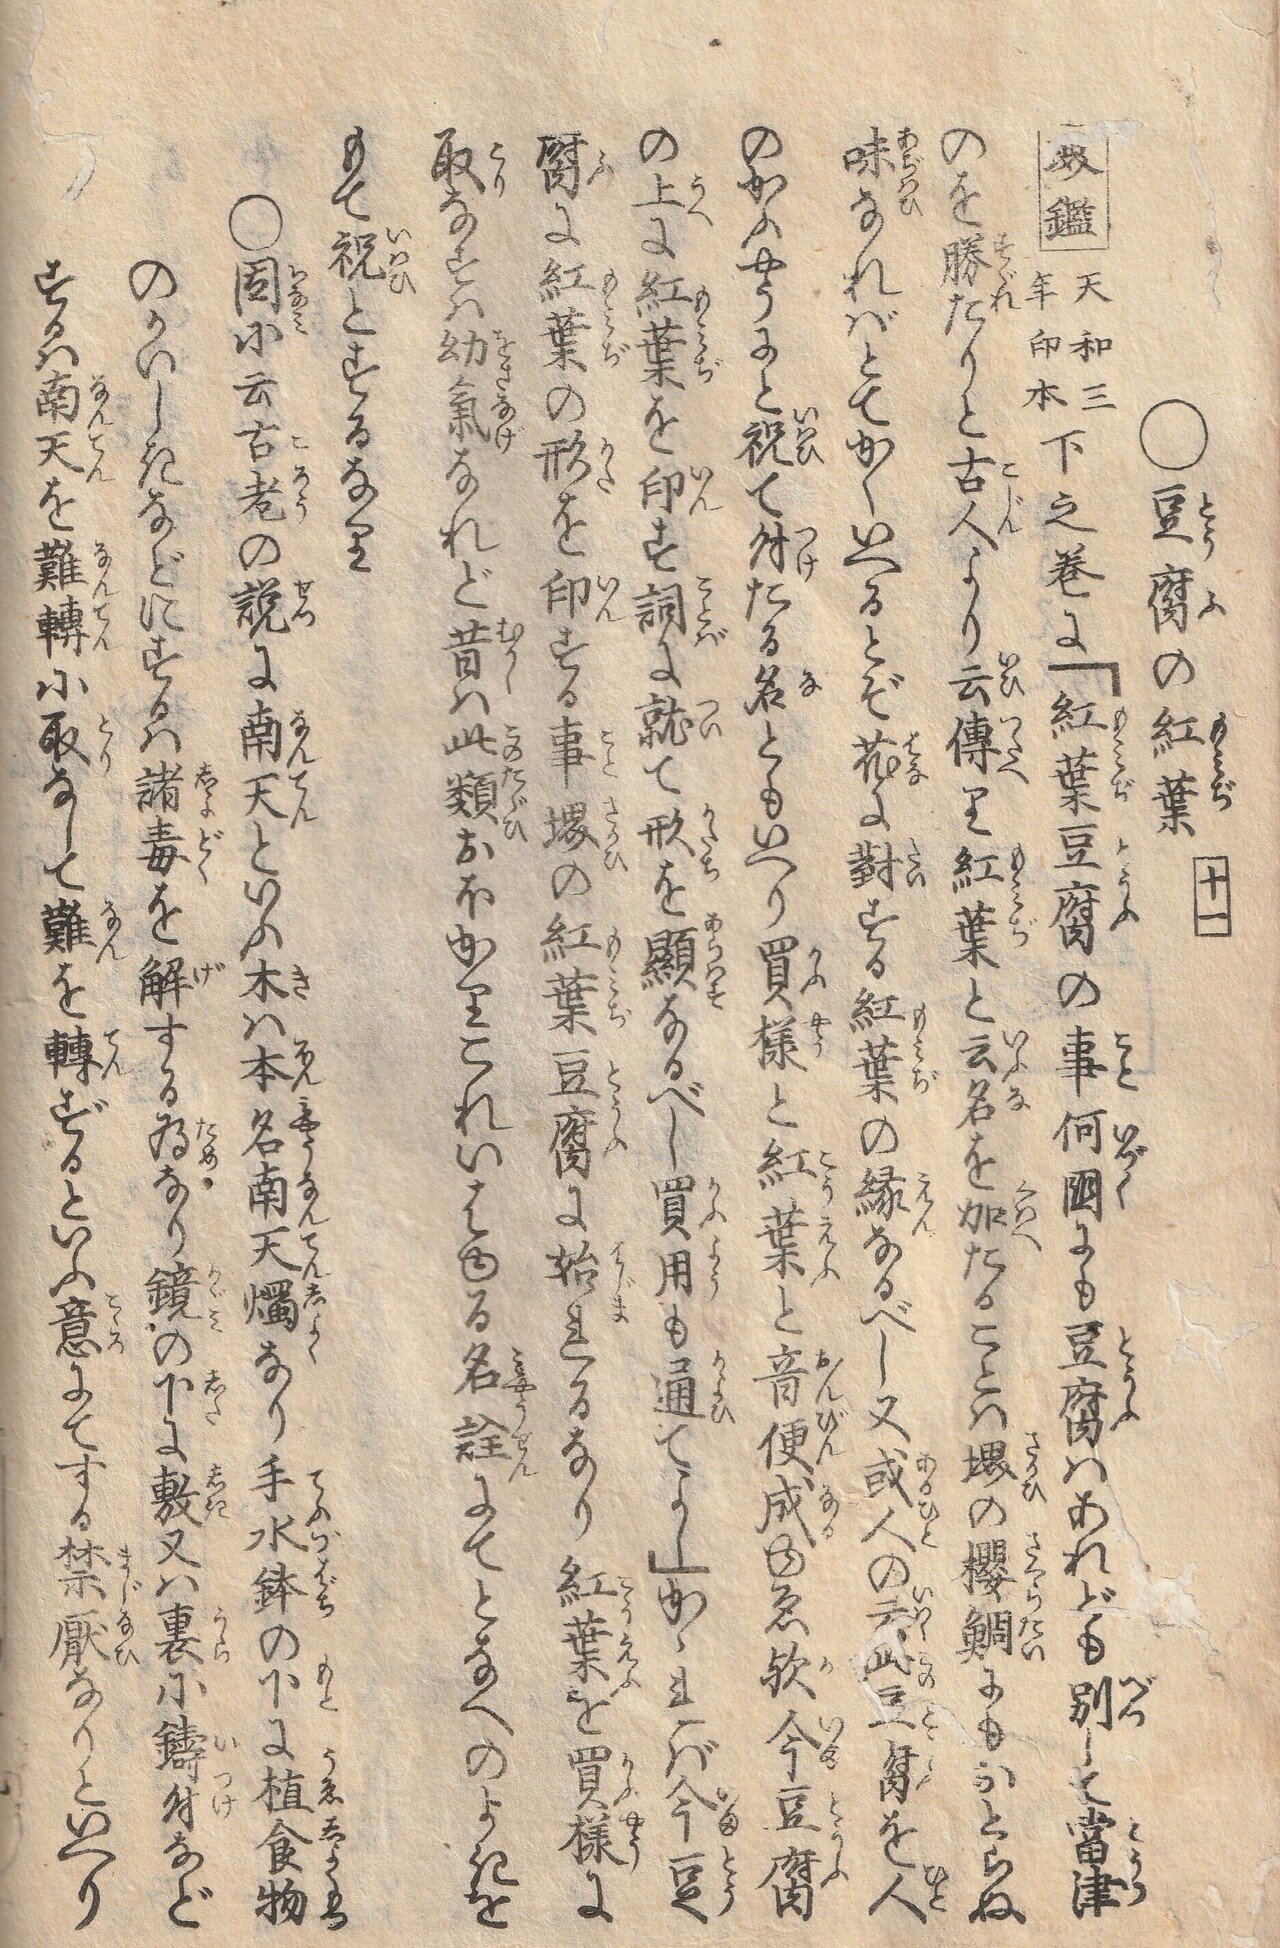 ○豆腐の紅葉 十一
とうふ もみぢ
女鑑 天和三年印本 下之巻に「紅葉豆腐の事何国にも豆腐はあれども別して當津
のを勝たりと古人より云傳り紅葉と云名を加たることは堺の櫻鯛にもおとらぬ
味なればとてかくいへるとぞ花に對する紅葉の縁なるべし又或人の云此豆腐を人
のかふやうにと祝て付たる名ともいへり買様と紅葉と音便成ゆゑ歟今豆腐
の上に紅葉を印す詞に就て形を顯なるべし買用も通てよし」かゝれば今豆
腐に紅葉の形を印する事堺の紅葉豆腐に始れるなり紅葉を買様に
取なすは幼氣なれど昔は此類おほかりこれいはゆる名詮にてとなへのよきを
もて祝とするなり
○因小云古老の説に南天といふ木は本名南天燭なり手水鉢の下に植食物
のかいしきなどにするは諸毒を解する為なり鏡の下に敷又は裏小鑄付など
するは南天を難轉小取なして難を轉ずるといふ意にてする禁厭なりといへり